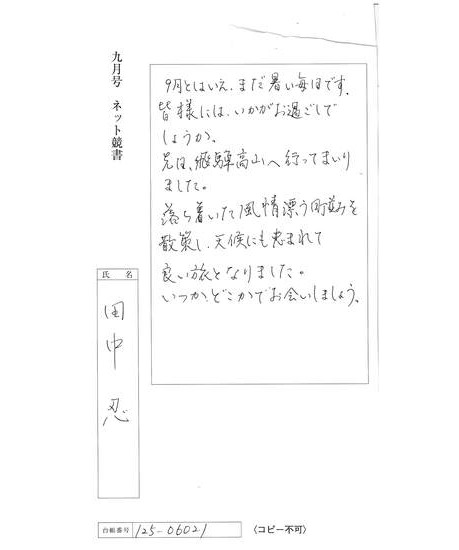 九月号 ネット競書
9月とはいえ、まだ暑い毎日です。
皆様には、いかがお過ごしで
しょうか。
先日、飛騨高山へ行ってまいり
ました。
落ち着いた風情漂う町並みを
散策し、天候にも恵まれて
良い旅となりました。
いつかどこかでお会いしましょう。
氏名
田中 忍
台帳番号 125-06021 〈コピー不可〉